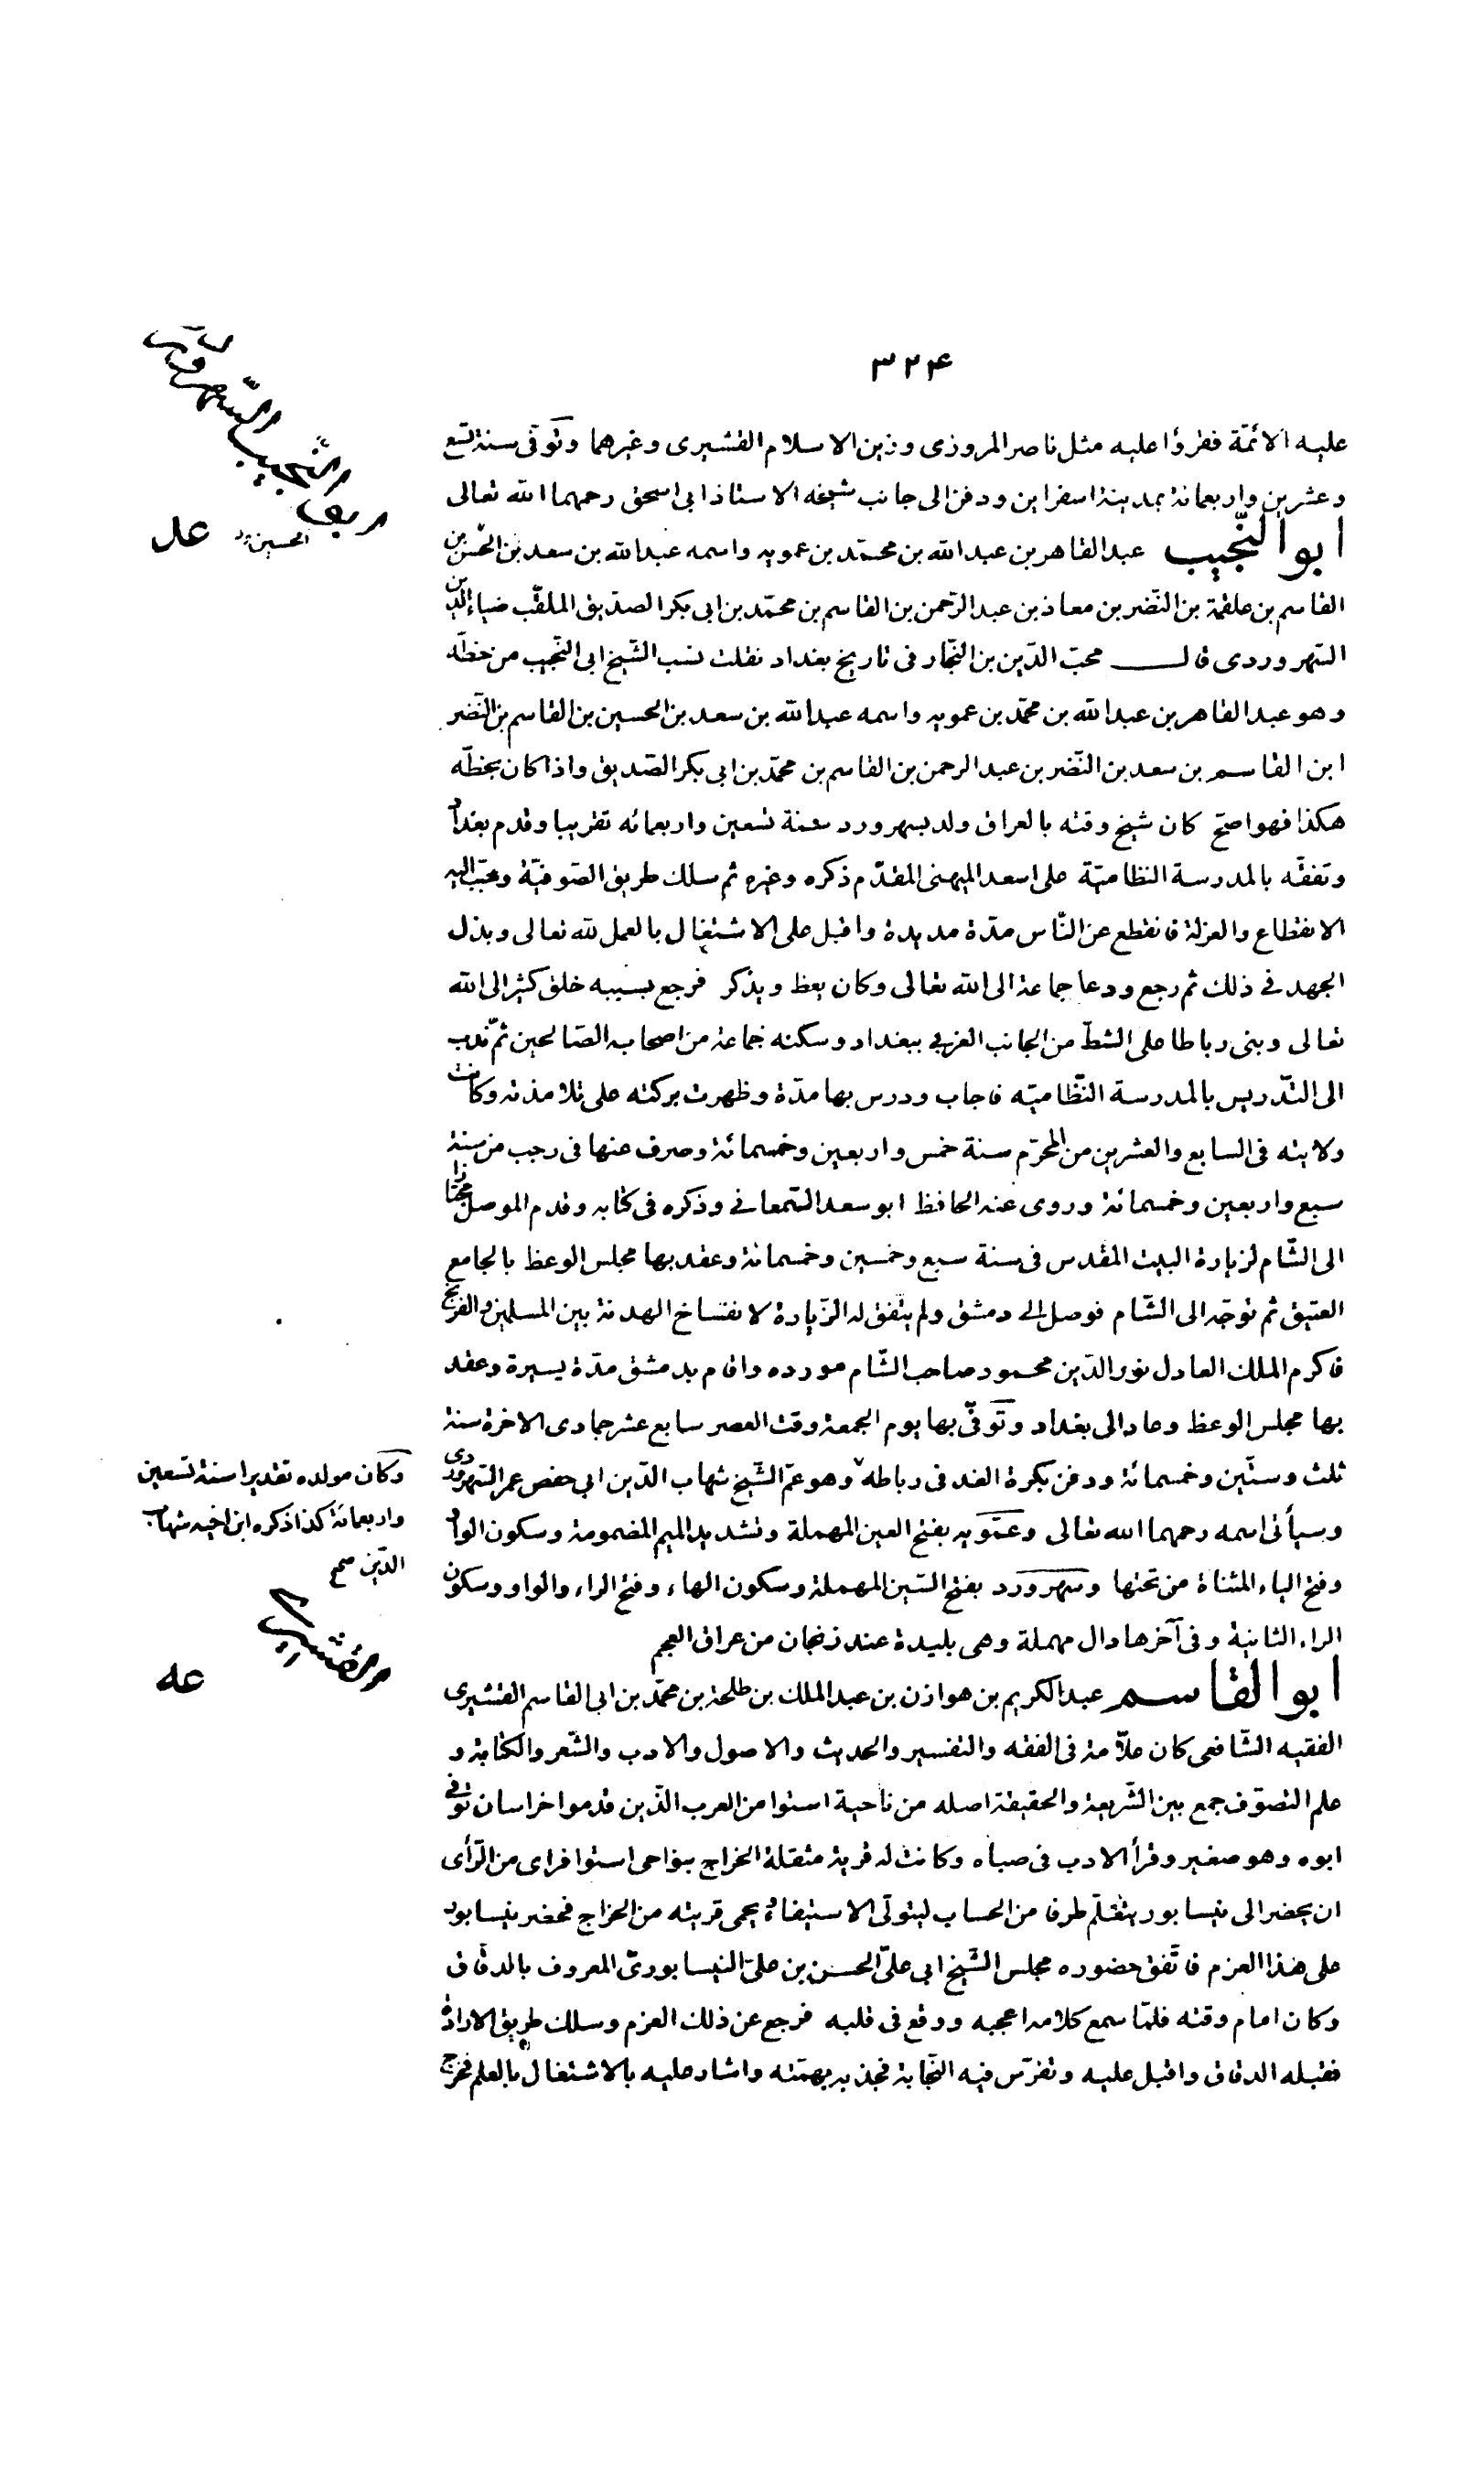 ٣٢۴
عليه الائمّة فقرؤا عليه مثل ناصر المروزى وزين الاسلام القشيرى وغيرهما وتوفّى سنة تسع
وعشرين واربعمائة بمدينة اسفراين ودفن الى جانب شيخه الاستاذ ابى اسحق رحمهما الله تعالى
ابو النّجيب عبد القاهر بن عبد الله بن محمّد بن عمويه واسمه عبد الله بن سعد بن الحسن بن
القاسم بن علقمة بن النّضر بن معاذ بن عبد الرّحمن بن القاسم بن محمّد بن ابى بكر الصدّيق الملقّب ضياء الدّين
السّهروردى قال محبّ الدّين بن النجّار فى تاريخ بغداد نقلت نسب الشّيخ ابى النّجيب من خطّه
وهو عبد القاهر بن عبد الله بن محمّد بن عمويه واسمه عبد الله بن سعد بن الحسين بن القاسم بن النّضر
ابن القاسم بن سعد بن النّضر بن عبد الرحمن بن القاسم بن محمّد بن ابى بكر الصّديق واذا كان بخطّه
هكذا فهو اصحّ كان شيخ وقته بالعراق ولد بسهرورد سنة تسعين واربعمائه تقريبا وقدم بغداد
وتفقّه بالمدرسة النظاميّة على اسعد الميهنى المقدّم ذكره وغيره ثم سلك طريق الصّوفيّة وحبّب اليه
الانقطاع والعزلة فانقطع عن النّاس مدّة مديدة واقبل على الاشتغال بالعمل لله تعالى وبذل
الجهد فى ذلك ثم رجع ودعا جماعة الى الله تعالى وكان يعظ ويذكر فرجع بسببه خلق كثير الى الله
تعالى وبنى رباطا على الشطّ من الجانب الغربى ببغداد وسكنه جماعة من اصحابه الصّالحين ثمّ ندب
الى التّدريس بالمدرسة النّظاميّه فاجاب ودرس بها مدّة وظهرت بركته على تلامذته وكانت
ولايته فى السابع والعشرين من المحرّم سنة خمس واربعين وخمسمائة وصرف عنها فى رجب من سنة
سبع واربعين وخمسمائة وروى عنه الحافظ ابو سعد السّمعانى وذكره فى كتابه وقدم الموصل مجتازا
الى الشّام لزيارة البيت المقدس فى سنة سبع وخمسين وخمسمائة وعقد بها مجلس الوعظ بالجامع
العتيق ثم توجّه الى الشّام فوصل الى دمشق ولم يتّفق له الزّيارة لانفساخ الهدنة بين المسلمين والفرنج
فاكرم الملك العادل نور الدّين محمود صاحب الشّام مورده واقام بدمشق مدّة يسيرة وعقد
بها مجلس الوعظ وعاد الى بغداد وتوفّى بها يوم الجمعة وقت العصر سابع عشر جمادى الاخرة سنة
ثلث وستّين وخمسمائة ودفن بكرة الغد فى رباطه وهو عمّ الشّيخ شهاب الدّين ابى حفص عمر السّهروردى
وسيأتى اسمه رحمهما الله تعالى وعمّويه بفتح العين المهملة وتشديد الميم المضمومة وسكون الواو
وفتح الياء المثناة من تحتها وسهرورد بفتح السّين المهملة وسكون الهاء وفتح الراء والواو وسكون
الراء الثانية وفى آخرها دال مهملة وهى بليدة عند زنجان من عراق العجم
ابو القاسم عبد الكريم بن هوازن بن عبد الملك بن طلحة بن محمّد بن ابى القاسم القشيرى
الفقيه الشّافعى كان علاّمة فى الفقه والتفسير والحديث والاصول والادب والشّعر والكتابة و
علم التصوّف جمع بين الشّريعة والحقيقة اصله من ناحية استوا من العرب الذّين قدموا خراسان توفّى
ابوه وهو صغير وقرأ الادب فى صباه وكانت له قرية مثقلة الخراج بنواحى استوا فراى من الرّأى
ان يحضر الى نيسابور يتعلّم طرفا من الحساب ليتولّى الاستيفاء ويحمى قريته من الخراج فحضر نيسابور
على هذا العزم فاتّفق حضوره مجلس الشّيخ ابى علىّ الحسن بن علىّ النيسابورىّ المعروف بالدقّاق
وكان امام وقته فلمّا سمع كلامه اعجبه ووقع فى قلبه فرجع عن ذلك العزم وسلك طريق الارادة
فقبله الدقاق واقبل عليه وتفرّس فيه النّجابة فجذبه بهمّته واشار عليه بالاشتغال بالعلم فخرج
النّجيب السّهروردى
الحسين
وكان مولده تقديرا سنة تسعين
واربعمائة كذا ذكره ابن اخيه شهاب
الدّين صح
القشيرى